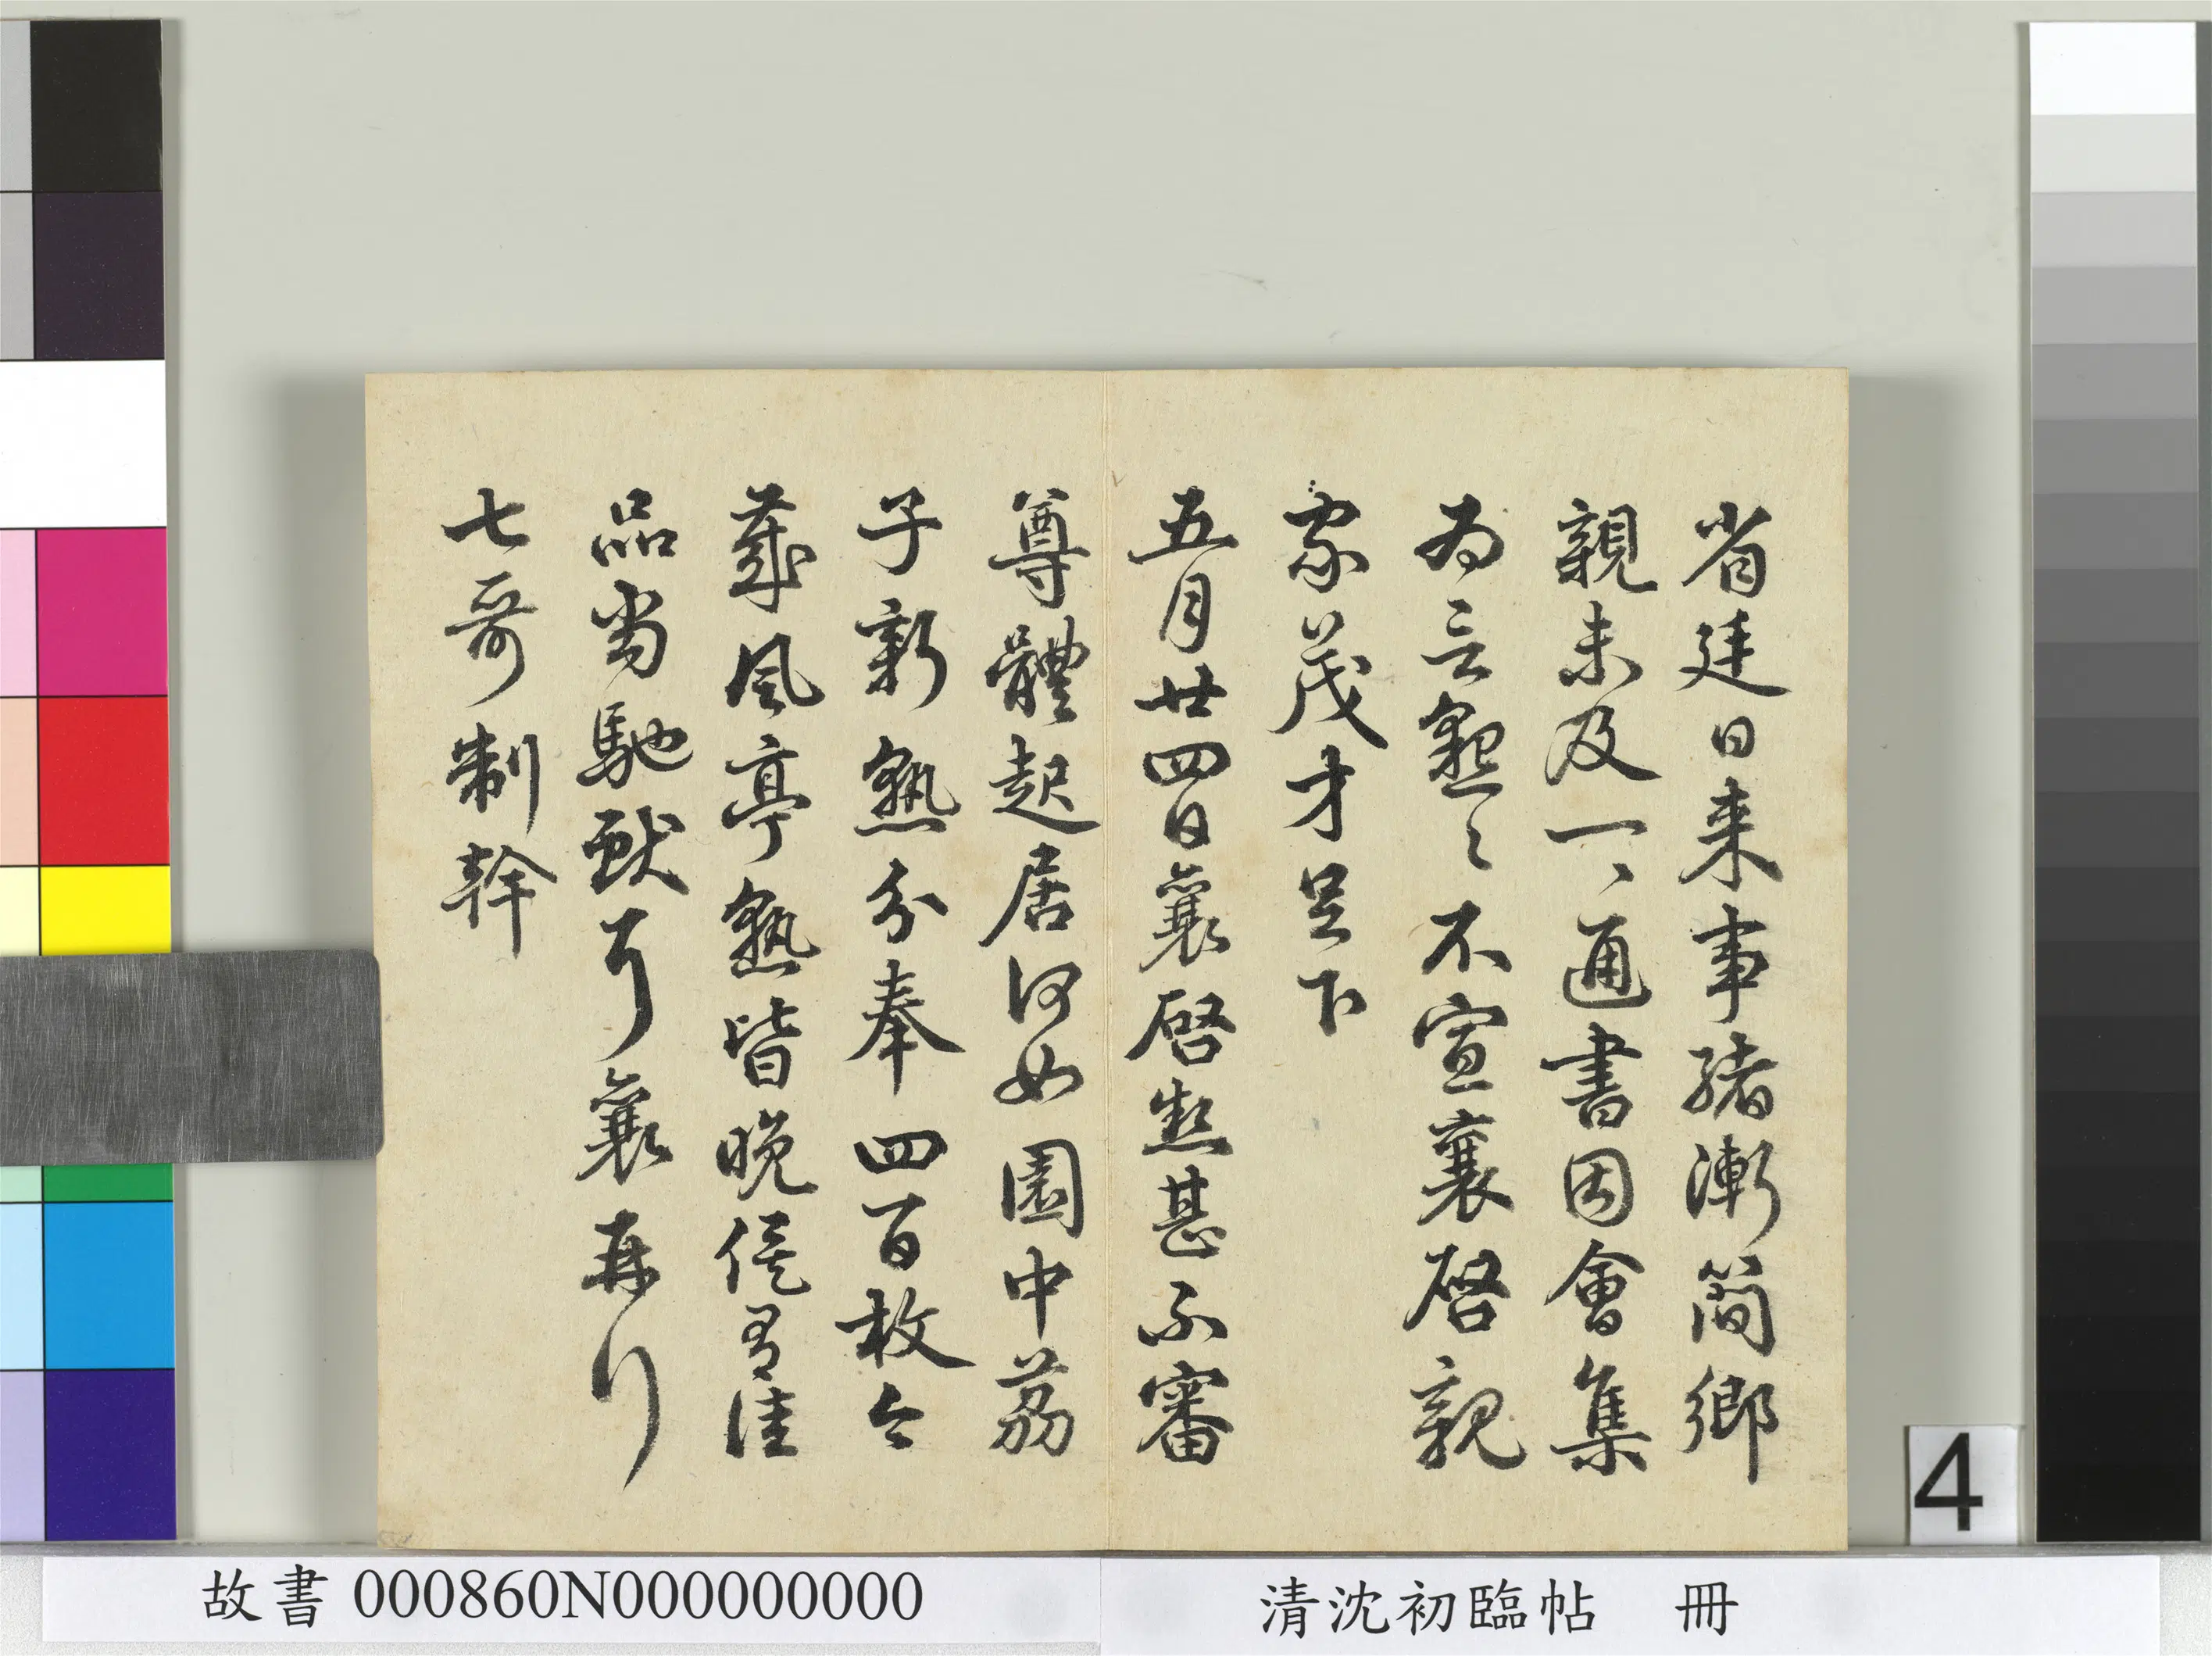 省廷日来事緒漸簡鄉
親未及一、通書因會集
為言懇〻不宣襄啓親
家茂才足下
五月廿四日襄啓熱甚不審
尊體起居何如園中荔
子新熟分奉四百枚今
歲風亭熟皆晚候有佳
品當馳獻耳襄再行
七哥制幹
4
故書000860N000000000
清沈初臨帖 冊